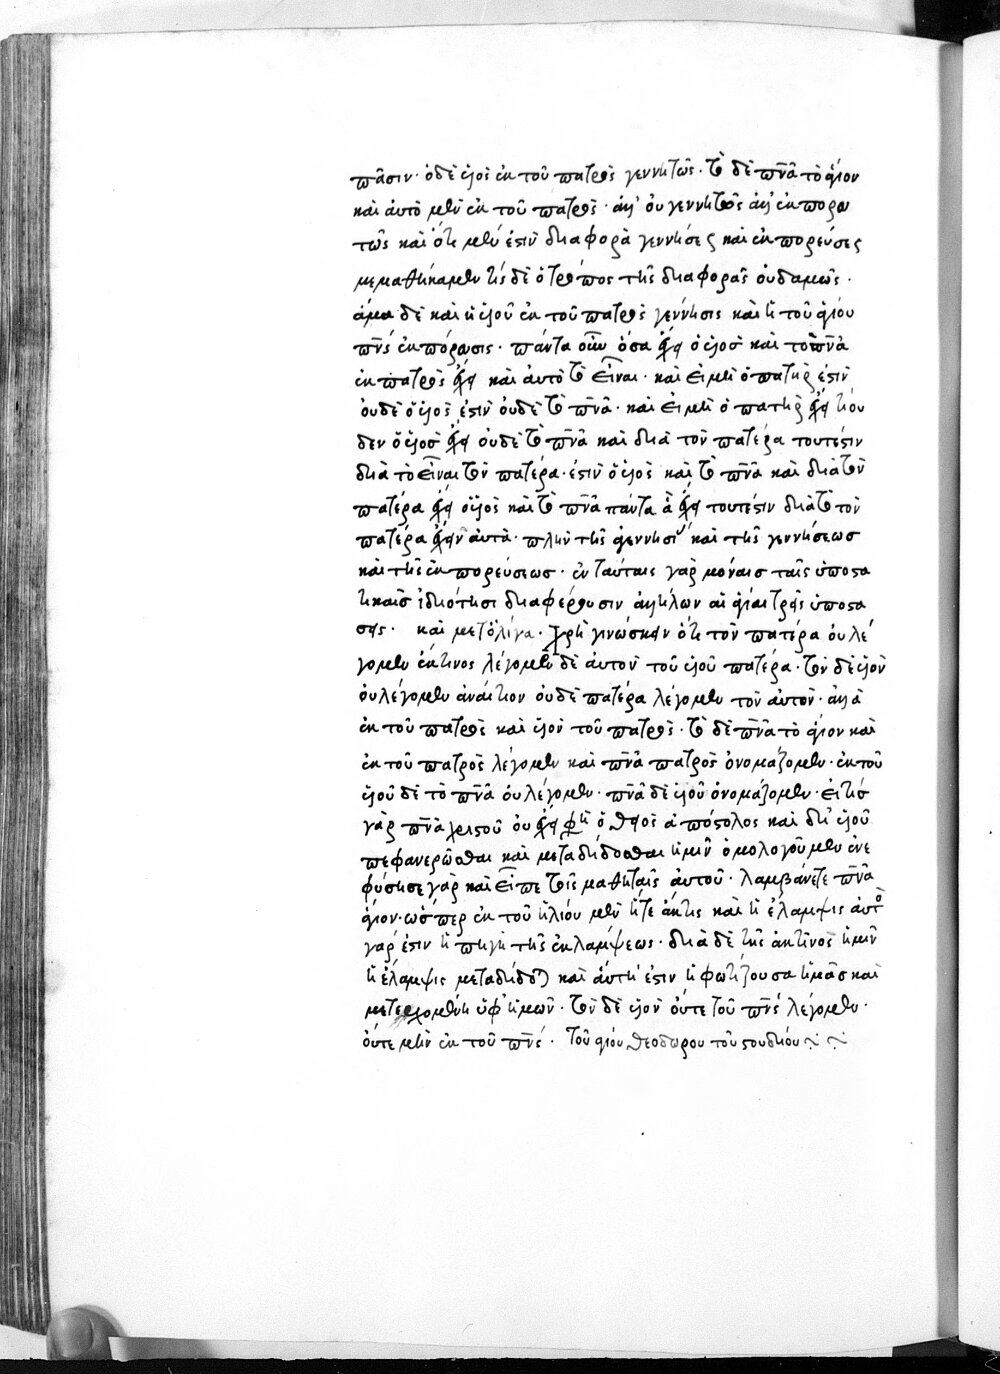 πᾶσιν· ὁ δὲ υἱὸς ἐκ τοῦ πατρὸς γεννητῶς· τὸ δὲ πνᾶ τὸ ἅγιον
καὶ αυτὸ μὲν ἐκ τοῦ πατρὸς· ἀλλ' ου γεννητῶς ἀλλ' ἐκπορευ
τῶς καὶ ὅτι μὲν ἐστὶν διαφορὰ γεννήσεως καὶ ἐκπορεύσεως
μεμαθήκαμεν τίς δὲ ὁ τρόπος τῆς διαφορᾶς οὐδαμῶς·
ἅμα δὲ καὶ ἡ υἱοῦ ἐκ τοῦ πατρὸς γέννησις καὶ ἡ τοῦ ἁγίου
πνς ἐκπόρευσις· πάντα οὖν ὅσα ἔχει ὁ υἱὸσ καὶ τὸ πνᾶ
ἐκ πατρὸς ἔχει καὶ ἀυτὸ τὸ εἶναι· καὶ ἐι μὴ ὁ πατὴρ ἐστὶν
ὀυδὲ ὁ υἱὸς ἐστὶν ὀυδὲ τὸ πνᾶ· καὶ ἐι μὴ ὁ πατὴρ ἔχει τι ὀυ
δὲν ὁ υἱὸσ ἔχει ὀυδὲ τὸ πνᾶ καὶ διὰ τὸν πατέρα τουτέστιν
διὰ τὸ εἶναι τὸν πατέρα· ἐστὶν ὁ υἱὸς καὶ τὸ πνᾶ καὶ διὰ τὸν
πατέρα ἔχει ὁ υἱὸς καὶ τὸ πνᾶ πάντα ἃ ἔχει τουτέστιν διὰ τὸ τὸν
πατέρα ἔχειν ἀυτὰ· πλὴν τῆς ἀγεννησί καὶ τῆς γεννήσεωσ
καὶ τῆς ἐκπορεύσεωσ· ἐν ταύταις γὰρ μόναισ ταῖς ὑποστα
τικαῖσ ἰδιότησι διαφέρουσιν ἀλλήλων αἱ ἅγίαι τρεῖς ὑποστά
σεις· καὶ μετ' ὀλίγα· Χρὴ γινώσκειν ὅτι τὸν πατέρα ὀυ λέ
γομεν ἔκ τινος λέγομεν δὲ ἀυτὸν τοῦ υἱοῦ πατέρα· τὸν δὲ υἱὸν
ὀυ λέγομεν ἀνάιτιον ὀυδὲ πατέρα λέγομεν τὸν ἀυτὸν· ἀλλὰ
ἐκ τοῦ πατρὸς καὶ υἱὸν τοῦ πατρὸς· τὸ δὲ πνᾶ τὸ ἅγιον καὶ
ἐκ τοῦ πατρὸς λέγομεν καὶ πνᾶ πατρὸς ὀνομάζομεν· ἐκ τοῦ
υἱοῦ δὲ τὸ πνᾶ ὀυ λέγομεν· πνᾶ δὲ υἱοῦ ὀνομάζομεν· ἔι τισ
γὰρ πνᾶ χριστοῦ ὀυκ ἔχει φησὶν ὁ θεῖος ἀπόστολος καὶ δι' υἱοῦ
πεφανερῶσθαι καὶ μεταδίδοσθαι ἡμῖν ὁμολογοῦμεν ἐνε
φύσησε γὰρ καὶ εἶπε τοῖς μαθηταῖς ἀυτοῦ· λαμβάνετε πνᾶ
ἅγιον· ὥσπερ ἐκ τοῦ ἡλίου μὲν ἥ τε ἀκτὶς καὶ ἡ ἔλαμψις ἀυτὸς
γάρ ἐστιν ἡ πηγὴ τῆς ἐκλάμψεως· διὰ δὲ τῆς ἀκτῖνος ἡμῖν
ἡ ἔλαμψις μεταδίδοται καὶ ἀυτή ἐστιν ἡ φωτίζουσα ἡμᾶσ καὶ
μετεχομένη ὑφ' ἡμῶν· τὸν δὲ υἱὸν ὀύτε τοῦ πνς λέγομεν·
ὀύτε μὴν ἐκ τοῦ πνς· Τοῦ ἁγίου θεοδώρου τοῦ στουδίου